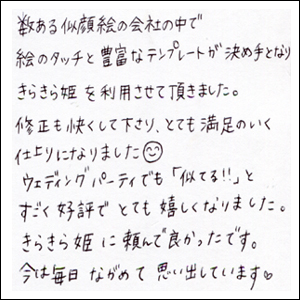 数ある似顔絵の会社の中で
絵のタッチと豊富なテンプレートが決め手となり
きらきら姫を利用させて頂きました。
修正も快くして下さり、とても満足のいく
仕上りになりました☺
ウェディングパーティでも「似てる!!」と
すごく好評でとても嬉しくなりました。
きらきら姫に頼んで良かったです。
今は毎日ながめて思い出しています♡